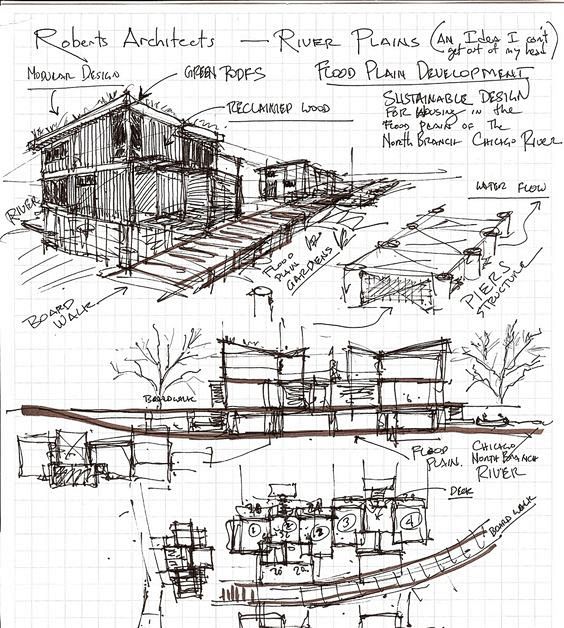 Roberts Architects — River Plains (An Idea I can't
get out of my head)
Modular Design
Green Roofs
Flood Plain Development
Reclaimed Wood
Sustainable Design
For Housing in the
Flood Plain of the
North Branch Chicago River
Water Flow
River
Flood
Plain
Gardens
Piers
Structure
Board
Walk
Boardwalk
Flood
Plain.
Chicago
North Branch
River
Deck
Boardwalk
1
2
2
3
4